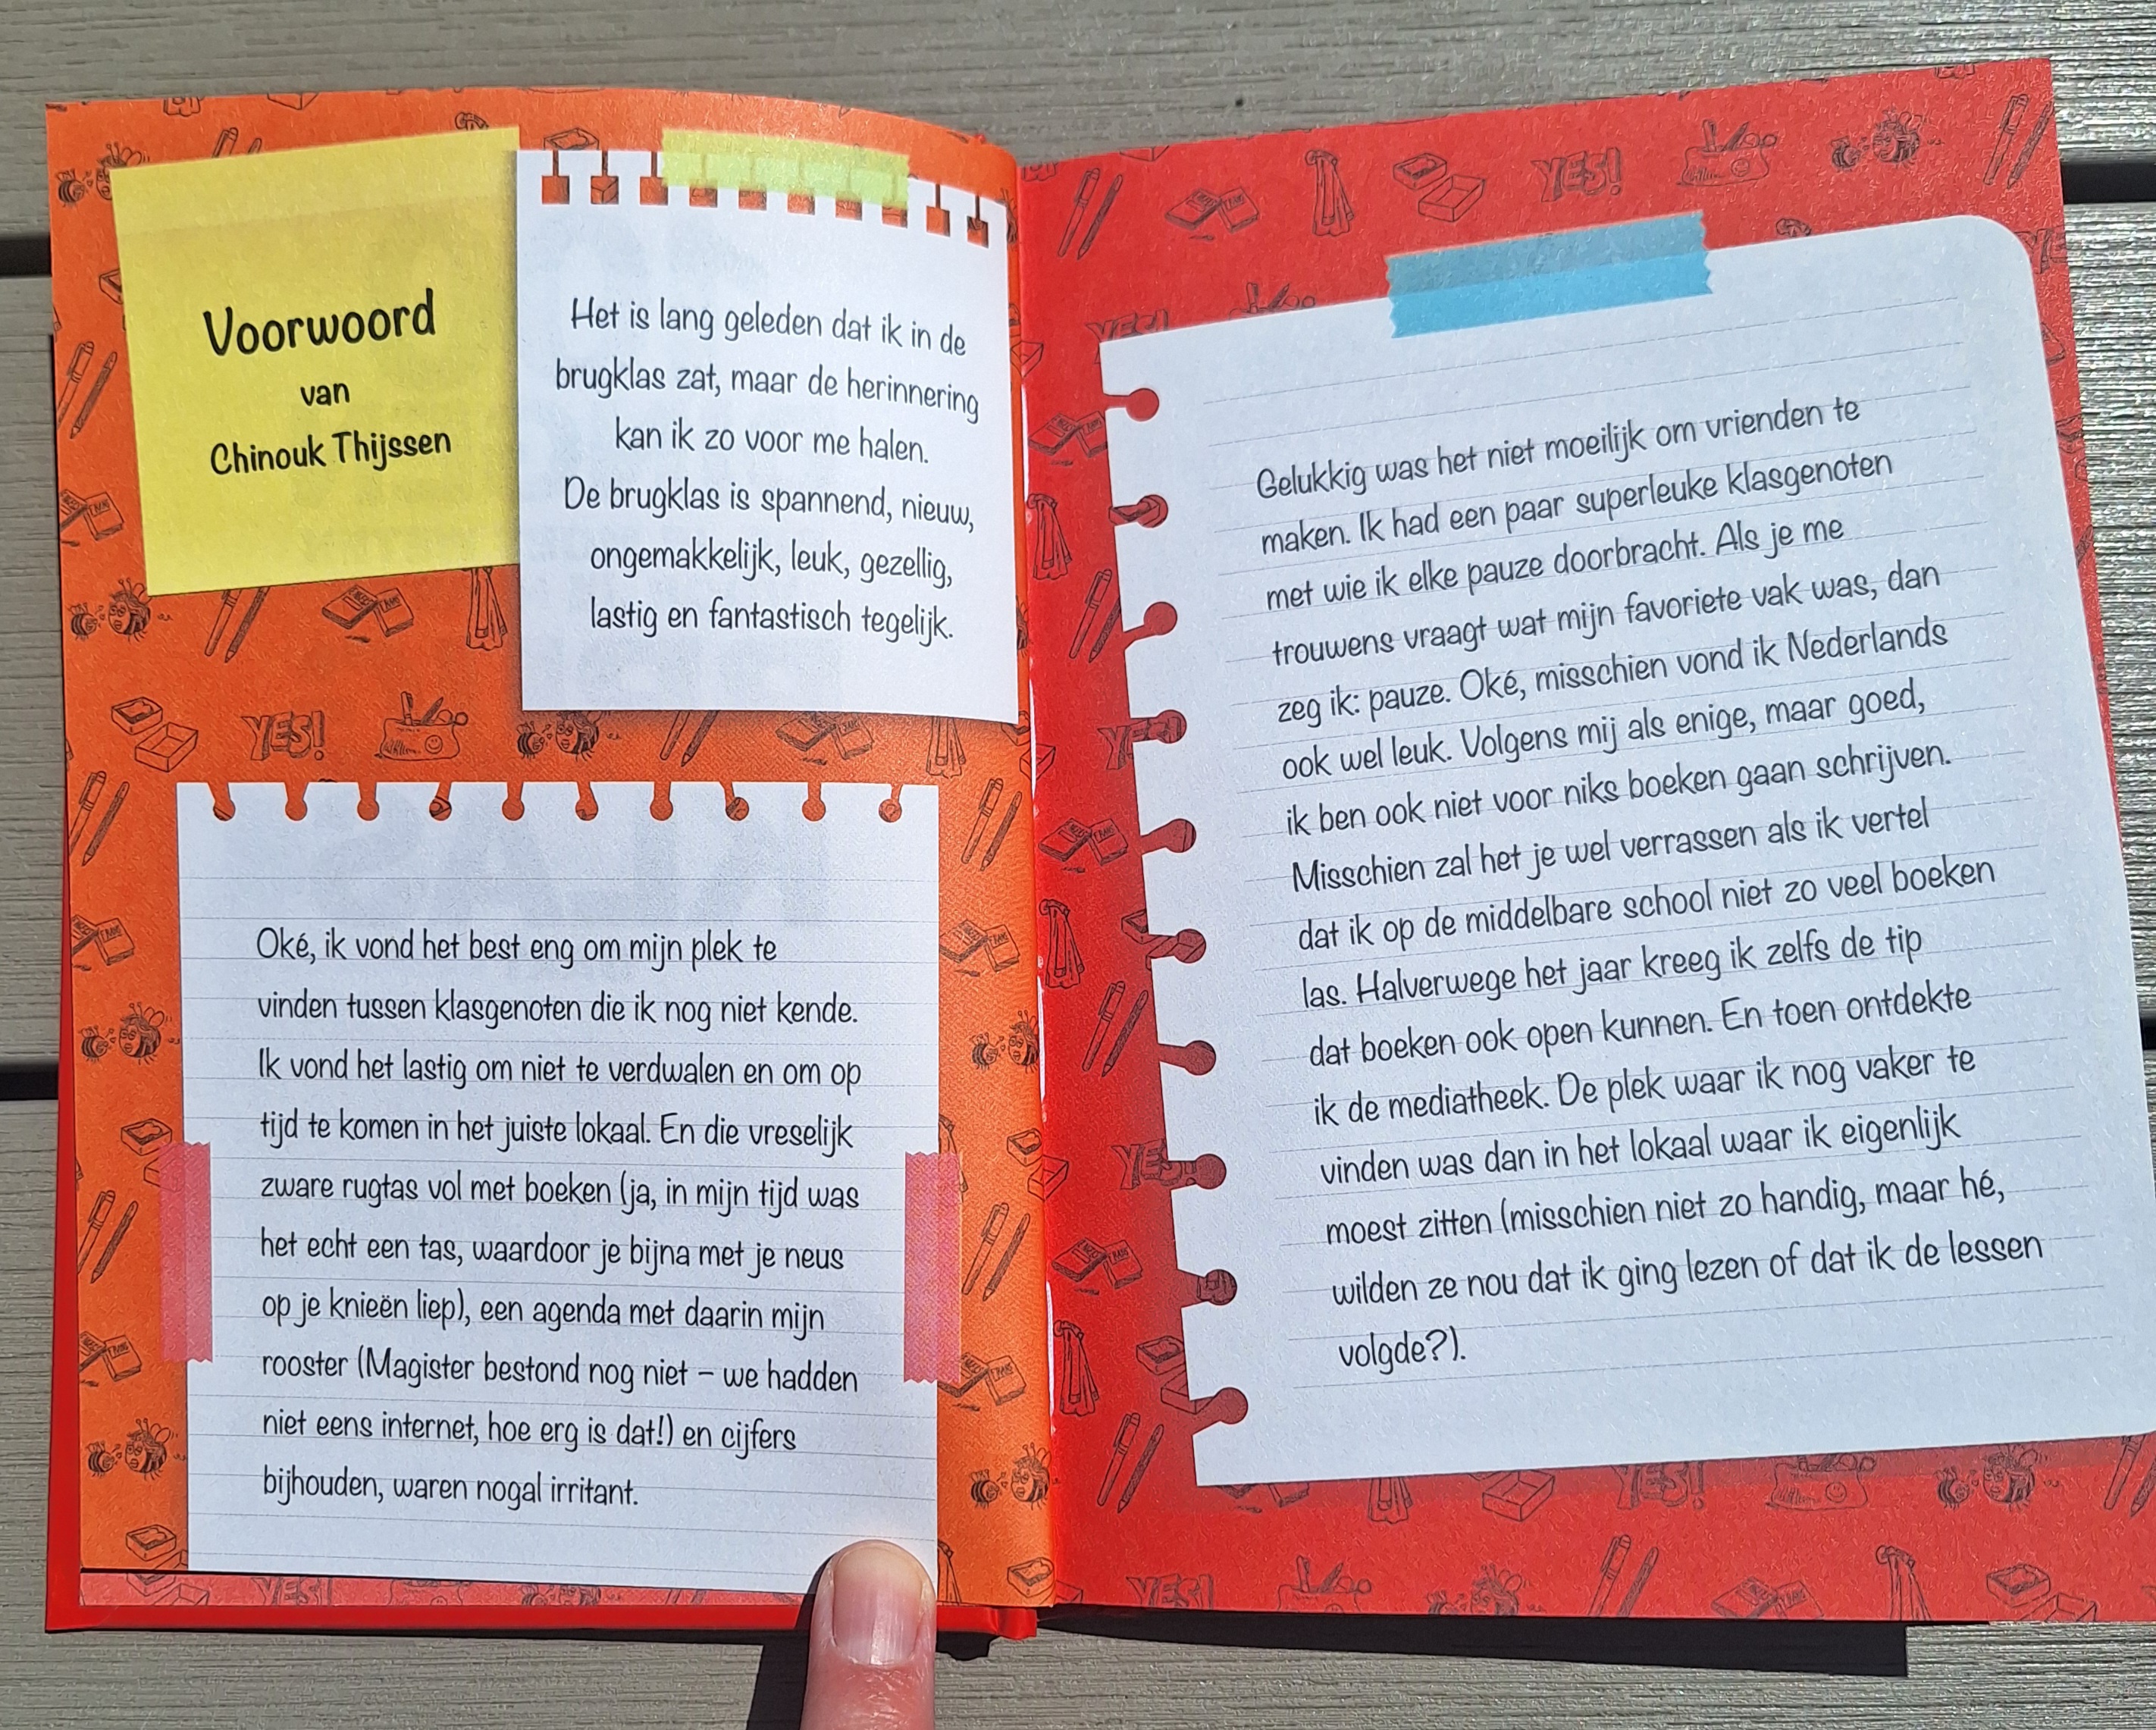 Voorwoord
van
Chinouk Thijssen
Het is lang geleden dat ik in de
brugklas zat, maar de herinnering
kan ik zo voor me halen.
De brugklas is spannend, nieuw,
ongemakkelijk, leuk, gezellig,
lastig en fantastisch tegelijk.
YES!
Oké, ik vond het best eng om mijn plek te
vinden tussen klasgenoten die ik nog niet kende.
Ik vond het lastig om niet te verdwalen en om op
tijd te komen in het juiste lokaal. En die vreselijk
zware rugtas vol met boeken (ja, in mijn tijd was
het echt een tas, waardoor je bijna met je neus
op je knieën liep), een agenda met daarin mijn
rooster (Magister bestond nog niet – we hadden
niet eens internet, hoe erg is dat!) en cijfers
bijhouden, waren nogal irritant.
YES!
YES!
Gelukkig was het niet moeilijk om vrienden te
maken. Ik had een paar superleuke klasgenoten
met wie ik elke pauze doorbracht. Als je me
trouwens vraagt wat mijn favoriete vak was, dan
zeg ik: pauze. Oké, misschien vond ik Nederlands
ook wel leuk. Volgens mij als enige, maar goed,
ik ben ook niet voor niks boeken gaan schrijven.
Misschien zal het je wel verrassen als ik vertel
dat ik op de middelbare school niet zo veel boeken
las. Halverwege het jaar kreeg ik zelfs de tip
dat boeken ook open kunnen. En toen ontdekte
ik de mediatheek. De plek waar ik nog vaker te
vinden was dan in het lokaal waar ik eigenlijk
moest zitten (misschien niet zo handig, maar hé,
wilden ze nou dat ik ging lezen of dat ik de lessen
volgde?).
YES!
YES!